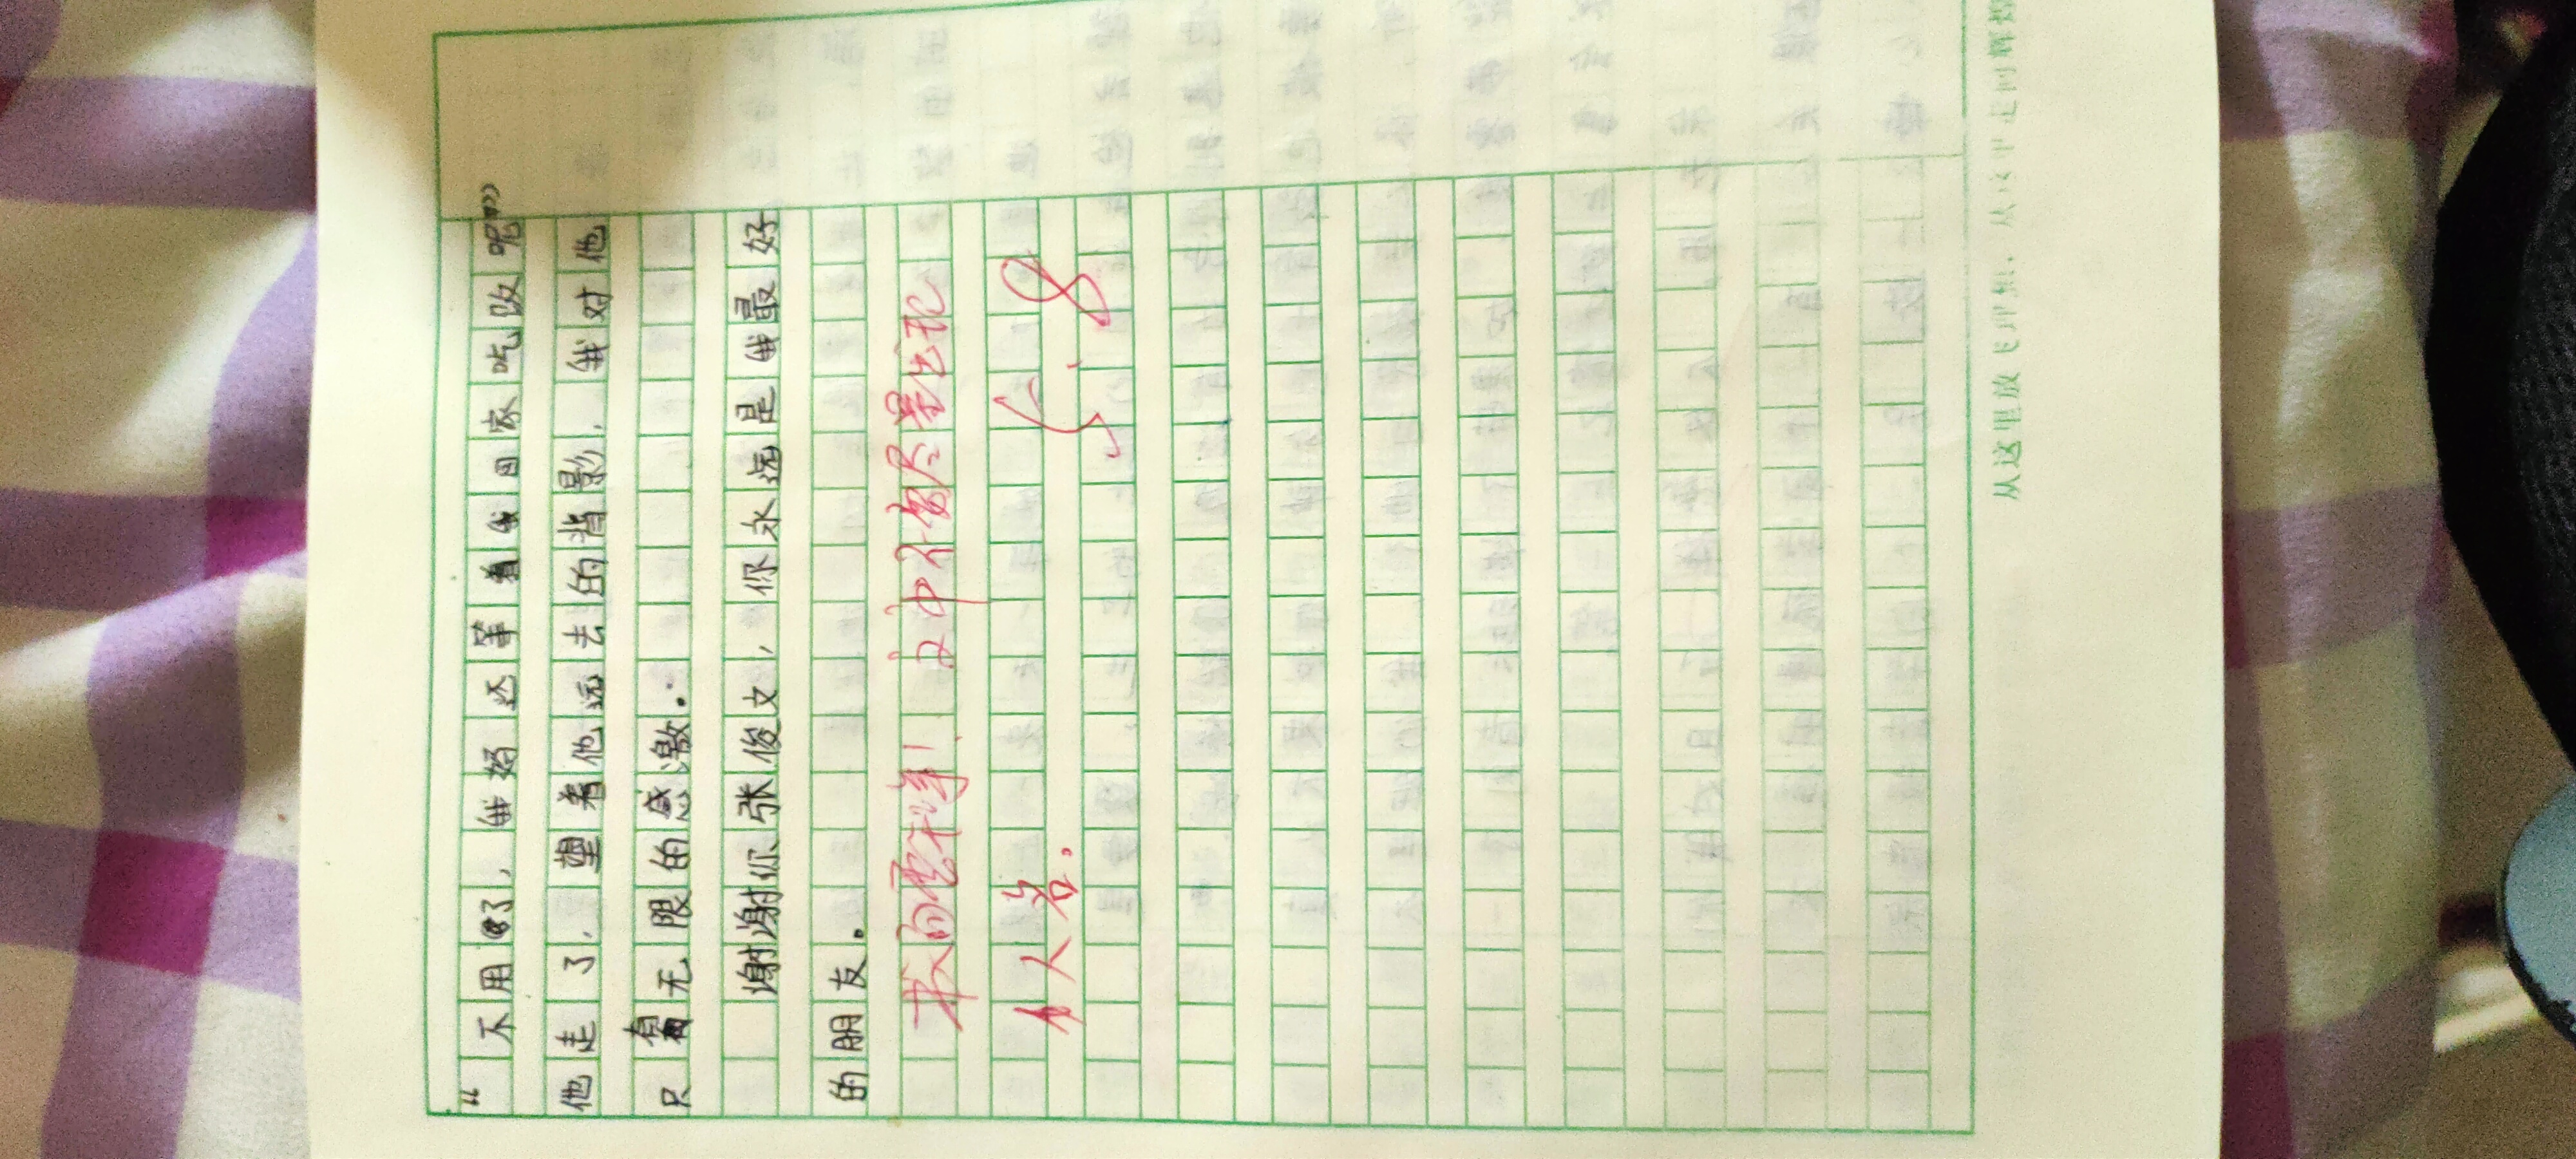 “不用了，我妈还等着我回家吃饭呢”
他走了，望着他远去的背影，我对他
只有无限的感激。
谢谢你张俊文，你永远是我最好
的朋友。
书面整洁！文中不够尽量出现
人名。
58
从这里放飞理想，从这里走向辉煌